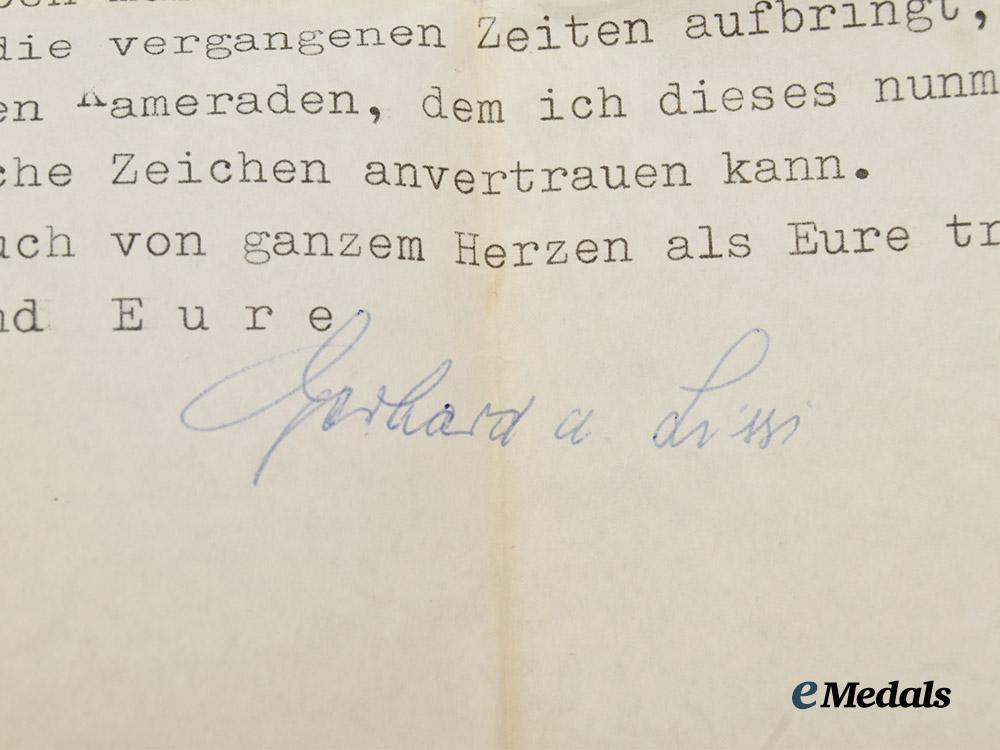 die vergangenen Zeiten aufbringt,
en Kameraden, dem ich dieses nunm
che Zeichen anvertrauen kann.
uch von ganzem Herzen als Eure tr
nd E u r e
Gerhard u Lissi
eMedals